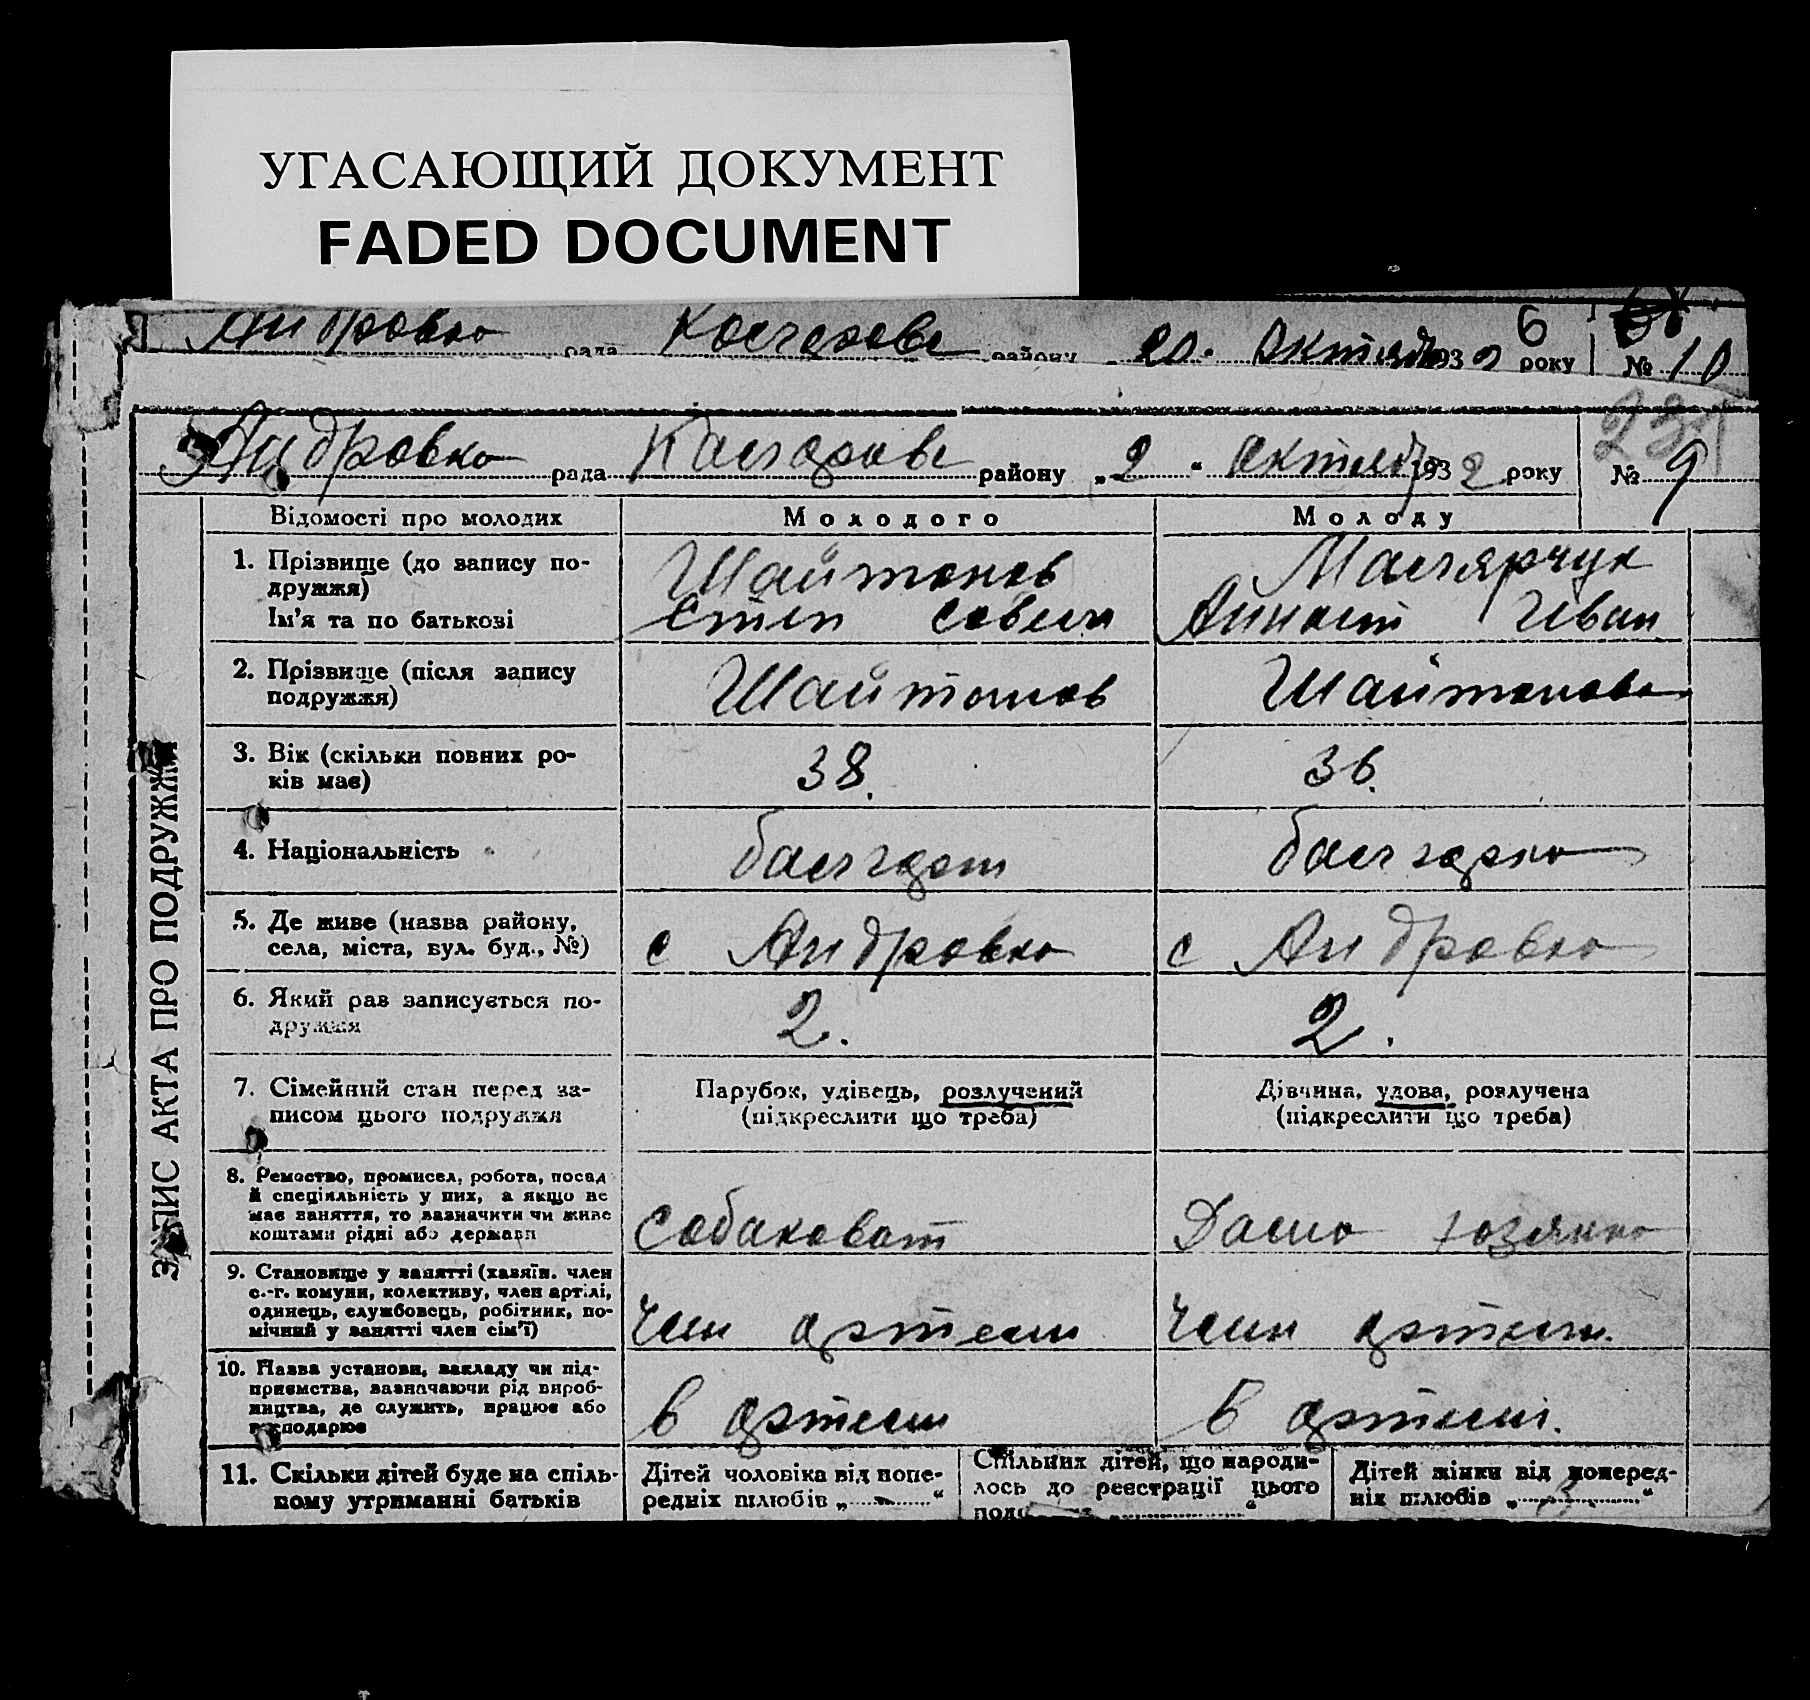 УГАСАЮЩИЙ ДОКУМЕНТ
FADED DOCUMENT
6
Андровка рада району 20. октяб 1932 року № 10
Андровка рада району „2“ октяб 1932 року № 9
ЗАПИС АКТА ПРО ПОДРУЖЖЯ
Відомості про молодих Молодого Молоду
1. Прізвище (до запису по- Шайтанов
дружжя)
Ім'я та по батькові Степ Савел Иван
2. Прізвище (після запису Шайтанов Шайтанова
подружжя)
3. Вік (скільки повних ро- 38. 36.
ків має)
4. Національність болгар болгарка
5. Де живе (назва району, с Андровка с Андровка
села, міста, вул. буд., №)
6. Який раз записується по- 2. 2.
дружжя
7. Сімейний стан перед за- Парубок, удівець, розлучений Дівчина, удова, розлучена
писом цього подружжя (підкреслити що треба) (підкреслити що треба)
8. Ремество, промисел, робота, посад
й спеціяльність у них, а якщо не
має заняття, то зазначити чи живе
коштами рідні або держави Дамо хозяика
9. Становище у занятті (хазяїн. член
с.-г. комуни, колективу, член артілі,
одинець, службовець, робітник, по- член артели член артели.
мічний у занятті член сім'ї)
10. Назва установи, закладу чи під-
приємства, зазначаючи рід вироб-
ництва, де служить, працює або в артели в артели.
господарює
11. Скільки дітей буде на спіль- Дітей чоловіка від попе- Спільних дітей, що народи- Дітей жінки від поперед-
ному утриманні батьків редніх шлюбів „ - “ лось до реєстрації цього ніх шлюбів „ 3 “